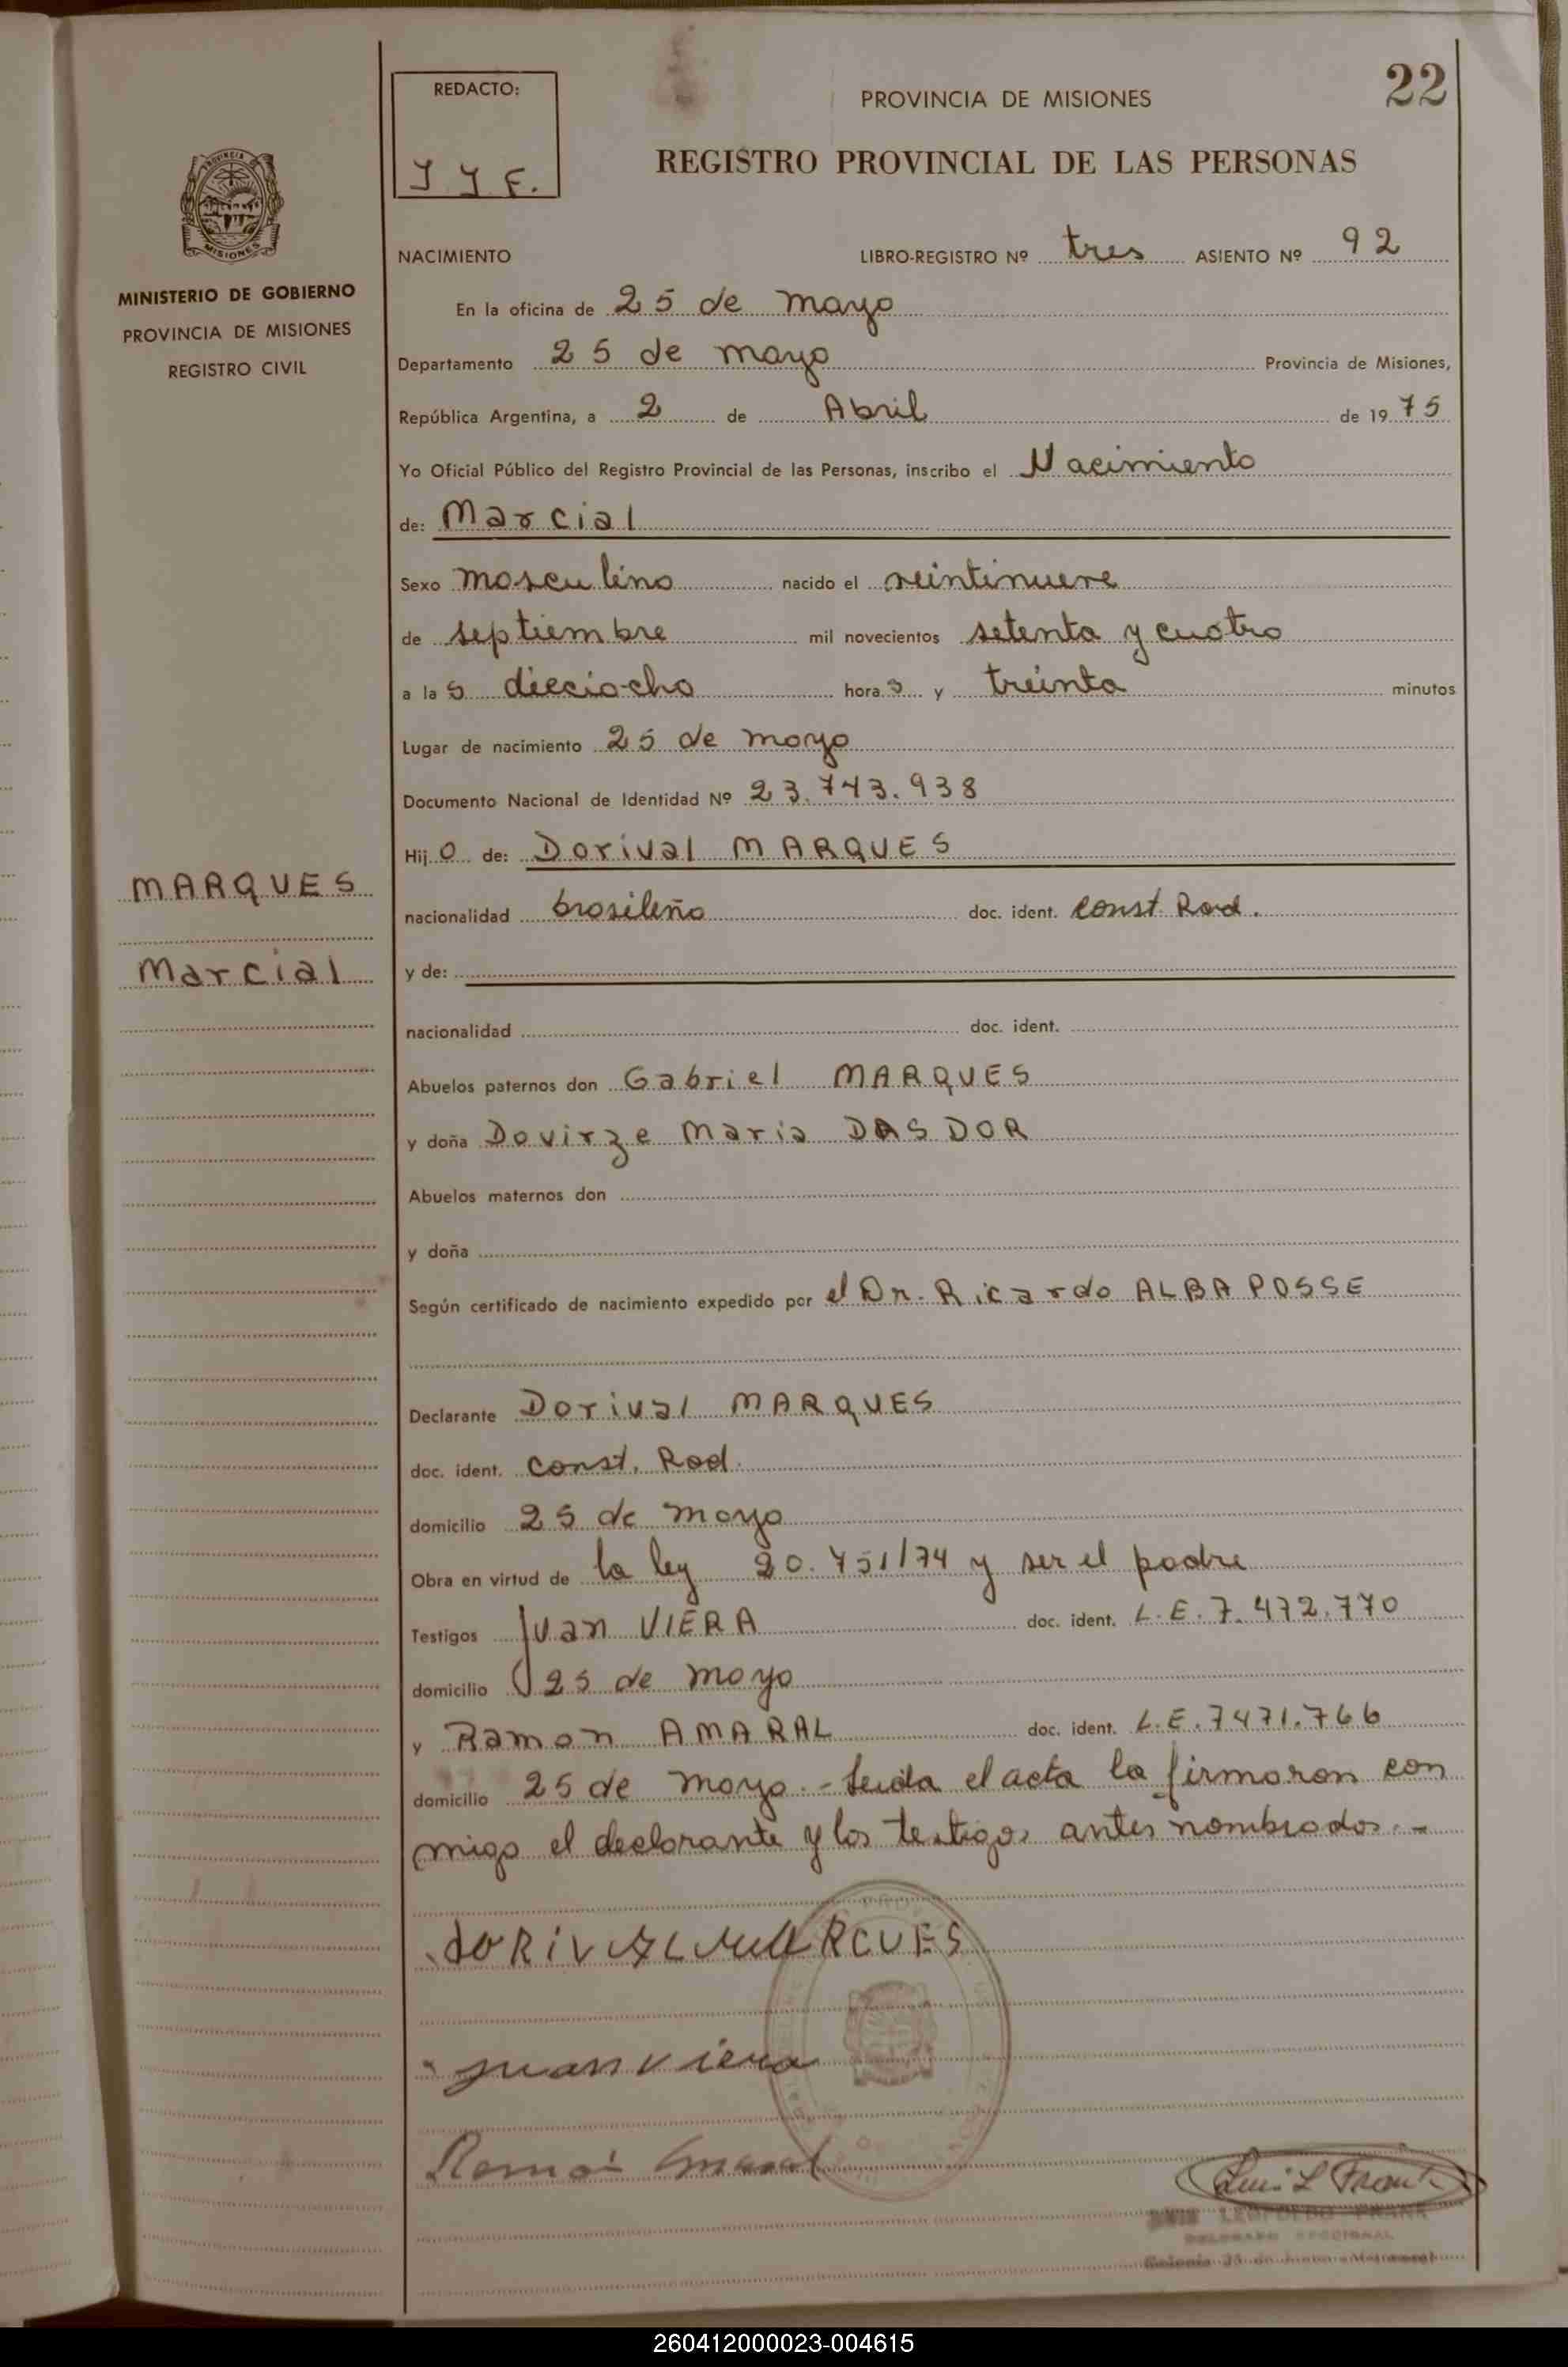 22
REDACTO:
J J F.
PROVINCIA DE MISIONES
REGISTRO PROVINCIAL DE LAS PERSONAS
MINISTERIO DE GOBIERNO
PROVINCIA DE MISIONES
REGISTRO CIVIL
NACIMIENTO LIBRO-REGISTRO Nº tres ASIENTO Nº 92
En la oficina de 25 de mayo
Departamento 25 de mayo Provincia de Misiones,
República Argentina, a 2 de Abril de 1975
Yo Oficial Público del Registro Provincial de las Personas, inscribo el Nacimiento
de: Marcial
Sexo masculino nacido el veintinueve
de septiembre mil novecientos setenta y cuatro
a las dieciocho horas y treinta minutos
Lugar de nacimiento 25 de mayo
Documento Nacional de Identidad Nº 23.743.938
Hijo de: Dorival MARQUES
MARQUES
Marcial
nacionalidad brasileño doc. ident. const. Rad.
y de:
nacionalidad doc. ident.
Abuelos paternos don Gabriel MARQUES
y doña Dovirze Maria DAS DOR
Abuelos maternos don
y doña
Según certificado de nacimiento expedido por el Dr. Ricardo ALBA POSSE
Declarante Dorival MARQUES
doc. ident. const. Rad.
domicilio 25 de mayo
Obra en virtud de la ley 20.751/74 y ser el padre
Testigos Juan VIERA doc. ident. L.E. 7.472.770
domicilio 25 de mayo
y Ramon AMARAL doc. ident. L.E. 7471.766
domicilio 25 de mayo.- Leida el acta la firmaron con
migo el declarante y los testigos antes nombrados.-
DORIVAL MARCUES
Juan Viera
Ramon Amaral
LEOPOLDO FRANK
260412000023-004615